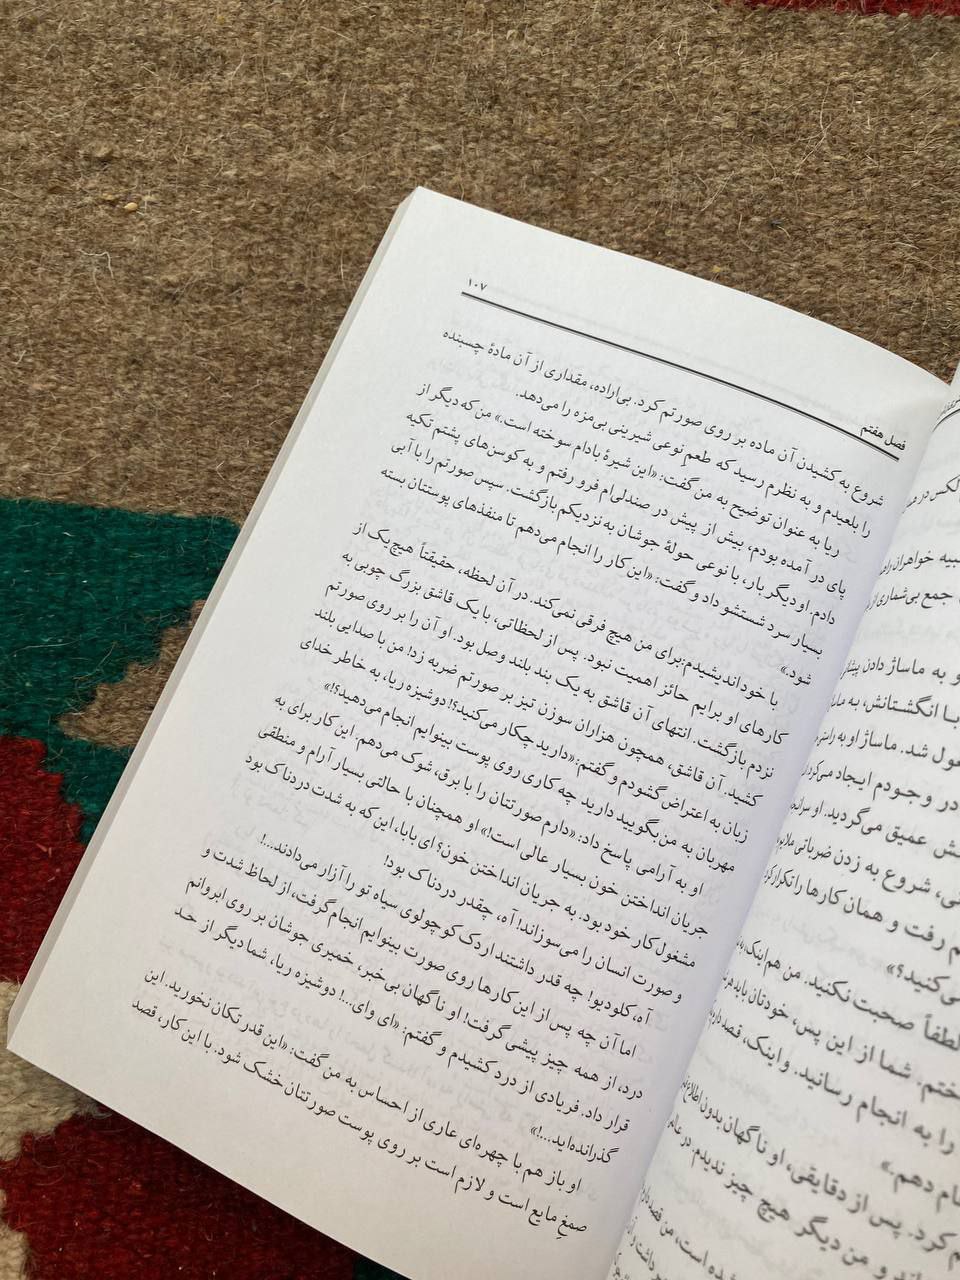 ۱۰۷
فصل هفتم
شروع به کشیدن آن ماده بر روی صورتم کرد. بی‌اراده، مقداری از آن مادۀ چسبنده
را بلعیدم و به نظرم رسید که طعم نوعی شیرینی بی‌مزه را می‌دهد.
ریا به عنوان توضیح به من گفت: «این شیرۀ بادام سوخته است.» من که دیگر از
پای در آمده بودم، بیش از پیش در صندلی‌ام فرو رفتم و به کوسن‌های پشتم تکیه
دادم. او دیگر بار، با نوعی حولۀ جوشان به نزدیکم بازگشت. سپس صورتم را با آبی
بسیار سرد شستشو داد و گفت: «این کار را انجام می‌دهم تا منفذهای پوستتان بسته
شود.»
با خود اندیشیدم: برای من هیچ فرقی نمی‌کند. در آن لحظه، حقیقتاً هیچ‌یک از
کارهای او برایم حائز اهمیت نبود. پس از لحظاتی، با یک قاشق بزرگ چوبی به
نزدم بازگشت. انتهای آن قاشق به یک بند بلند وصل بود. او آن را بر روی صورتم
کشید. آن قاشق، همچون هزاران سوزن تیز بر صورتم ضربه زد! من با صدایی بلند
زبان به اعتراض گشودم و گفتم: «دارید چکار می‌کنید؟! دوشیزه ریا، به خاطر خدای
مهربان به من بگویید دارید چه کاری روی پوست بینوایم انجام می‌دهید؟!»
او به آرامی پاسخ داد: «دارم صورتتان را با برق، شوک می‌دهم. این کار برای به
جریان انداختن خون بسیار عالی است!» او همچنان با حالتی بسیار آرام و منطقی
مشغول کار خود بود. به جریان انداختن خون؟ ای بابا، این که به شدت دردناک بود
و صورت انسان را می‌سوزاند! آه، چقدر دردناک بود!
آه، کلودیو! چه قدر داشتند اردک کوچولوی سیاه تو را آزار می‌دادند...!
اما آن چه پس از این کارها روی صورت بینوایم انجام گرفت، از لحاظ شدت و
درد، از همه چیز پیشی گرفت! او ناگهان بی‌خبر، خمیری جوشان بر روی ابروانم
قرار داد. فریادی از درد کشیدم و گفتم: «ای وای...! دوشیزه ریا، شما دیگر از حد
گذرانده‌اید...!»
او باز هم با چهره‌ای عاری از احساس به من گفت: «این قدر تکان نخورید. این
صمغِ مایع است و لازم است بر روی پوست صورتتان خشک شود. با این کار، قصد
الکس در
خواهران
جمع بی‌شماری از
و به ماساژ دادن
با انگشتانش، به
شد. ماساژ او به
در وجودم ایجاد می‌کرد
عمیق می‌گردید. او
شروع به زدن ضرباتی
رفت و همان کارها را تکرار
می‌کنید؟»
لطفاً صحبت نکنید. من هم اینک
شما از این پس، خودتان باید
را به انجام رسانید. و اینک، قصد
دهم.»
کرد. پس از دقایقی، او ناگهان بدون اطلاع
و من دیگر هیچ چیز ندیدم. در
شده است، من قصد
داشت و